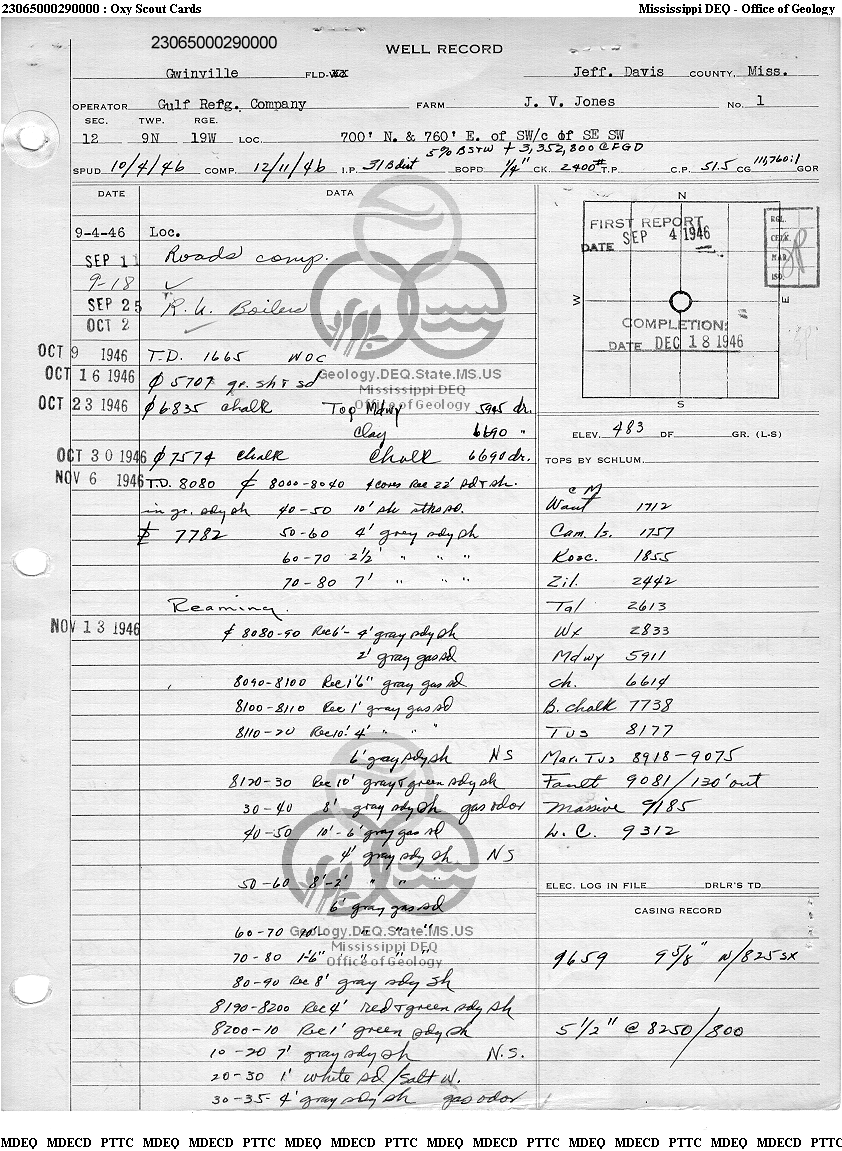 23065000290000 : Oxy Scout Cards Mississippi DEQ - Office of Geology
23065000290000
WELL RECORD
Gwinville FLD-XX Jeff. Davis COUNTY, Miss.
OPERATOR Gulf Refg. Company FARM J. V. Jones No. 1
SEC. TWP. RGE.
12 9N 19W LOC. 700' N. & 760' E. of SW/c of SE SW
5% BS+W + 3,352,800 CFGD
SPUD 10/4/46 COMP. 12/11/46 I.P. 31 B dist BOPD 1/4" CK. 2400# T.P. C.P. 51.5 CG 111,760:1 GOR
DATE DATA
9-4-46 Loc.
SEP 11 Roads comp.
9-18 ✓
SEP 25 R.U. Boilers
OCT 2
OCT 9 1946 T.D. 1665 WOC
OCT 16 1946 ₵ 5707 gr. sh & sd
OCT 23 1946 ₵ 6835 chalk Top Mdwy 5945 dr.
Clay 6690 "
OCT 30 1946 ₵ 7574 chalk Chalk 6690 dr.
NOV 6 1946 T.D. 8080 ₵ 8000-8040 4 cores Rec 22' sd & sh.
in gr. sdy sh 40-50 10' sh stks sd.
₵ 7782 50-60 4' grey sdy sh
60-70 2½' " " "
70-80 7' " " "
Reaming.
NOV 13 1946 ₵ 8080-90 Rec 6'- 4' gray sdy sh
2' gray gas sd
8090-8100 Rec 1'6" gray gas sd
8100-8110 Rec 1' gray gas sd
8110-20 Rec 10'. 4' " " "
6' gray sdy sh NS
8120-30 Rec 10' gray & green sdy sh
30-40 8' gray sdy sh gas odor
40-50 10'- 6' gray gas sd
4' gray sdy sh NS
50-60 8'-2' " " "
6' gray gas sd
60-70 " " "
70-80 1-6" " " "
80-90 Rec 8' gray sdy sh
8190-8200 Rec 4' red & green sdy sh
8200-10 Rec 1' green sdy sh
10-20 7' gray sdy sh N.S.
20-30 1' white sd / salt W.
30-35 4' gray sdy sh gas odor
Geology.DEQ.State.MS.US
Mississippi DEQ
Office of Geology
Geology.DEQ.State.MS.US
Mississippi DEQ
Office of Geology
N
W
E
S
FIRST REPORT
DATE SEP 4 1946
COMPLETION:
DATE DEC 18 1946
REG.
MAR.
ISO.
ELEV. 483 DF. GR. (L-S)
TOPS BY SCHLUM.
CM
Waut 1712
Cam. ls. 1757
Kosc. 1855
Zil. 2442
Tal 2613
Wx 2833
Mdwy 5911
Ch. 6614
B. chalk 7738
Tus 8177
Mar. Tus 8918-9075
Fault 9081/130' out
Massive 9185
L.C. 9312
ELEC. LOG IN FILE DRLR'S TD
CASING RECORD
1659 9 5/8" W/825 SX
5 1/2" @ 8250/800
MDEQ MDECD PTTC MDEQ MDECD PTTC MDEQ MDECD PTTC MDEQ MDECD PTTC MDEQ MDECD PTTC MDEQ MDECD PTTC